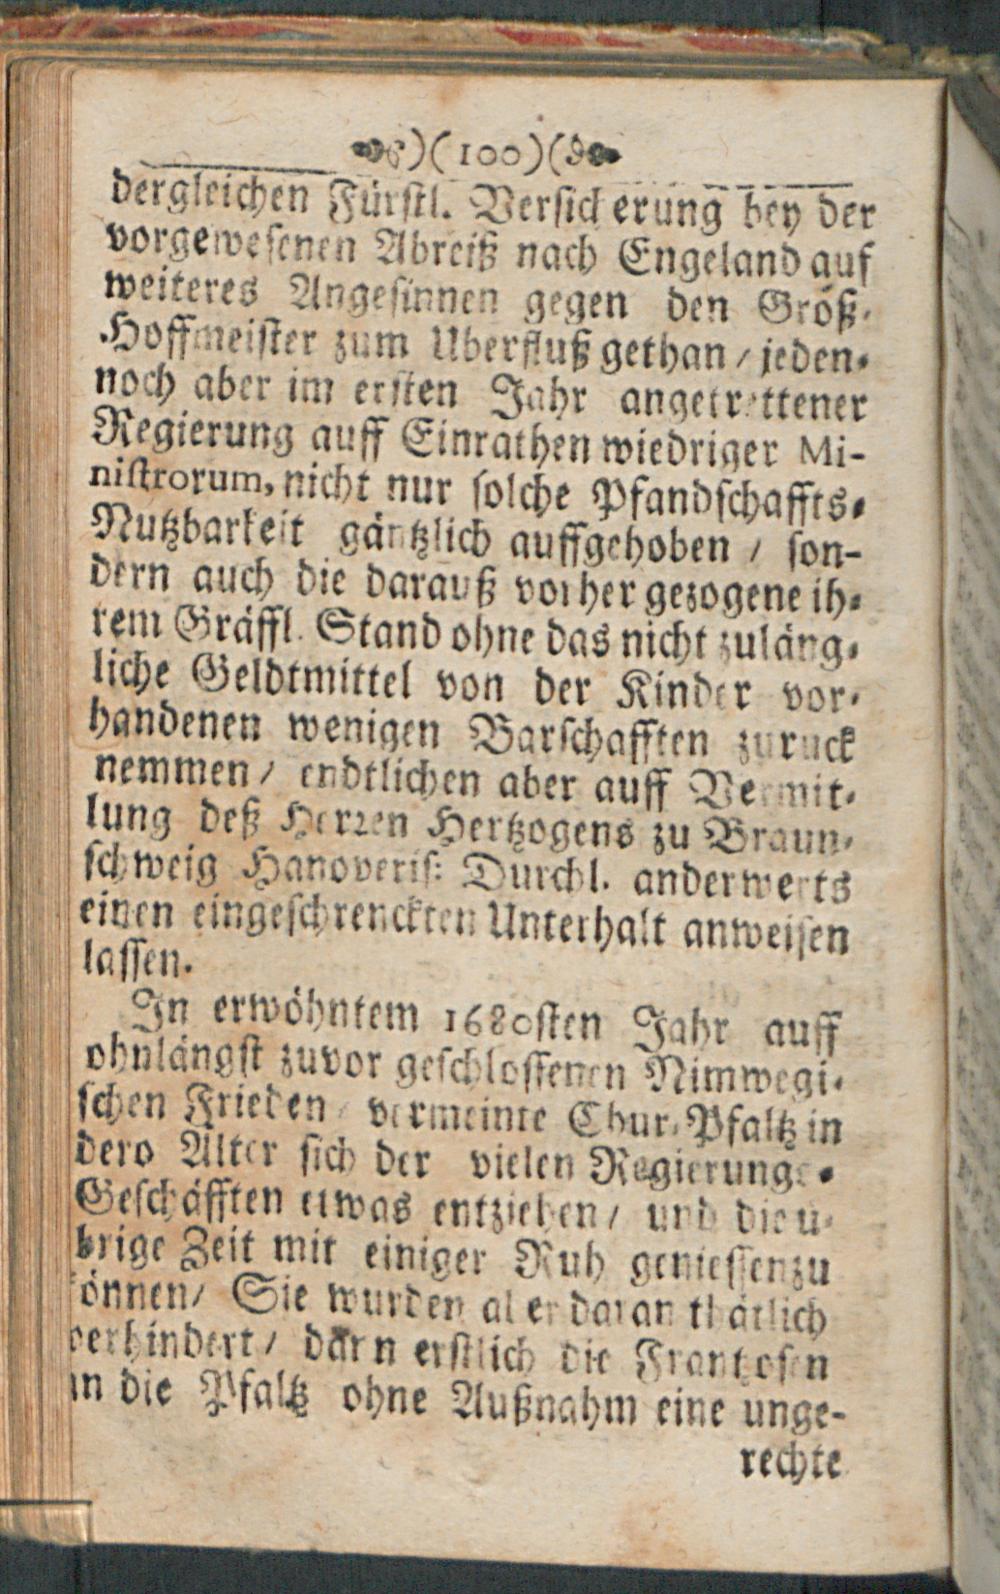 )(100)(
dergleichen Fürstl. Versicherung bey der
vorgewesenen Abreiß nach Engeland auf
weiteres Angesinnen gegen den Größ-
Hoffmeister zum Uberfluß gethan / jeden-
noch aber im ersten Jahr angetrettener
Regierung auff Einrathen wiedriger Mi-
nistrorum, nicht nur solche Pfandschaffts-
Nutzbarkeit gäntzlich auffgehoben / son-
dern auch die darauß vorher gezogene ih-
rem Gräffl. Stand ohne das nicht zuläng-
liche Geldtmittel von der Kinder vor-
handenen wenigen Barschafften zuruck
nemmen / endtlichen aber auff Vermit-
lung deß Herren Hertzogens zu Braun-
schweig Hanoveris: Durchl. anderwerts
einen eingeschrenckten Unterhalt anweisen
lassen.
In erwöhntem 1680sten Jahr auff
ohnlängst zuvor geschlossenen Nimwegi-
schen Frieden / vermeinte Chur-Pfaltz in
dero Alter sich der vielen Regierungs-
Geschäfften etwas entziehen / und die ü-
brige Zeit mit einiger Ruh geniessen zu
können / Sie wurden aber daran thätlich
verhindert / dann erstlich die Frantzosen
in die Pfaltz ohne Außnahm eine unge-
rechte